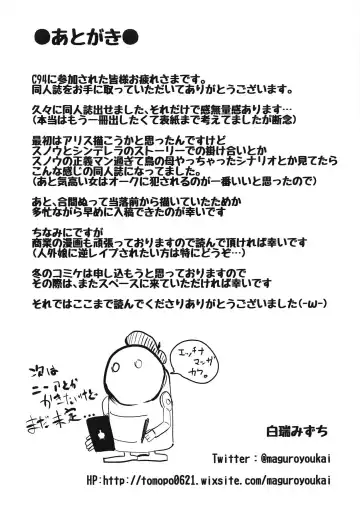 ●あとがき●
C94に参加された皆様お疲れさまです。
同人誌をお手に取っていただいてありがとうございます。
久々に同人誌出せました、それだけで感無量感あります…
(本当はもう一冊出したくて表紙まで考えてましたが断念)
最初はアリス描こうかと思ったんですけど
スノウとシンデレラのストーリーでの掛け合いとか
スノウの正義マン過ぎて鳥の母やっちゃったシナリオとか見てたら
こんな感じの同人誌になってました。
(あと気高い女はオークに犯されるのが一番いいと思ったので)
あと、合間ぬって当落前から描いていたためか
多忙ながら早めに入稿できたのが幸いです
ちなみにですが
商業の漫画も頑張っておりますので読んで頂ければ幸いです
(人外娘に逆レイプされたい方は特にどうぞ…)
冬のコミケは申し込もうと思っておりますので
その際は、またスペースに来ていただければ幸いです
それではここまで読んでくださりありがとうございました(-ω-)
エッチナ
マンガ
カケ。
次は
ニーアとか
かきたいけど
まだ未定…
白瑞みずち
Twitter：@maguroyoukai
HP:http://tomopo0621.wixsite.com/maguroyoukai